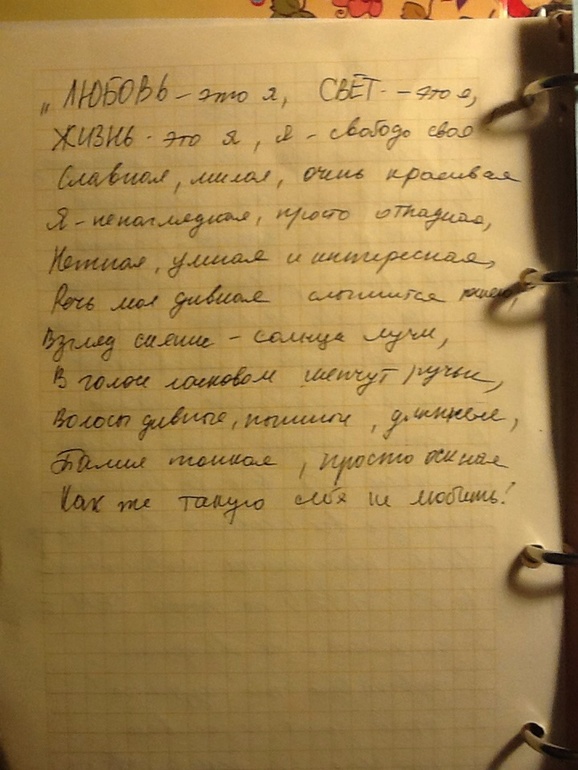 „ ЛЮБОВЬ – это я, СВЕТ – это я,
ЖИЗНЬ - это я, я - свобода своя
Славная, милая, очень красивая
Я - ненаглядная, просто отпадная,
Нежная, умная и интересная,
Речь моя дивная слышится
Взгляд сияние - солнца лучи,
В голосе ласковом шепчут ручьи,
Волосы дивные, пышные, длинные,
Талия тонкая, просто
Как же такую себя не любить!